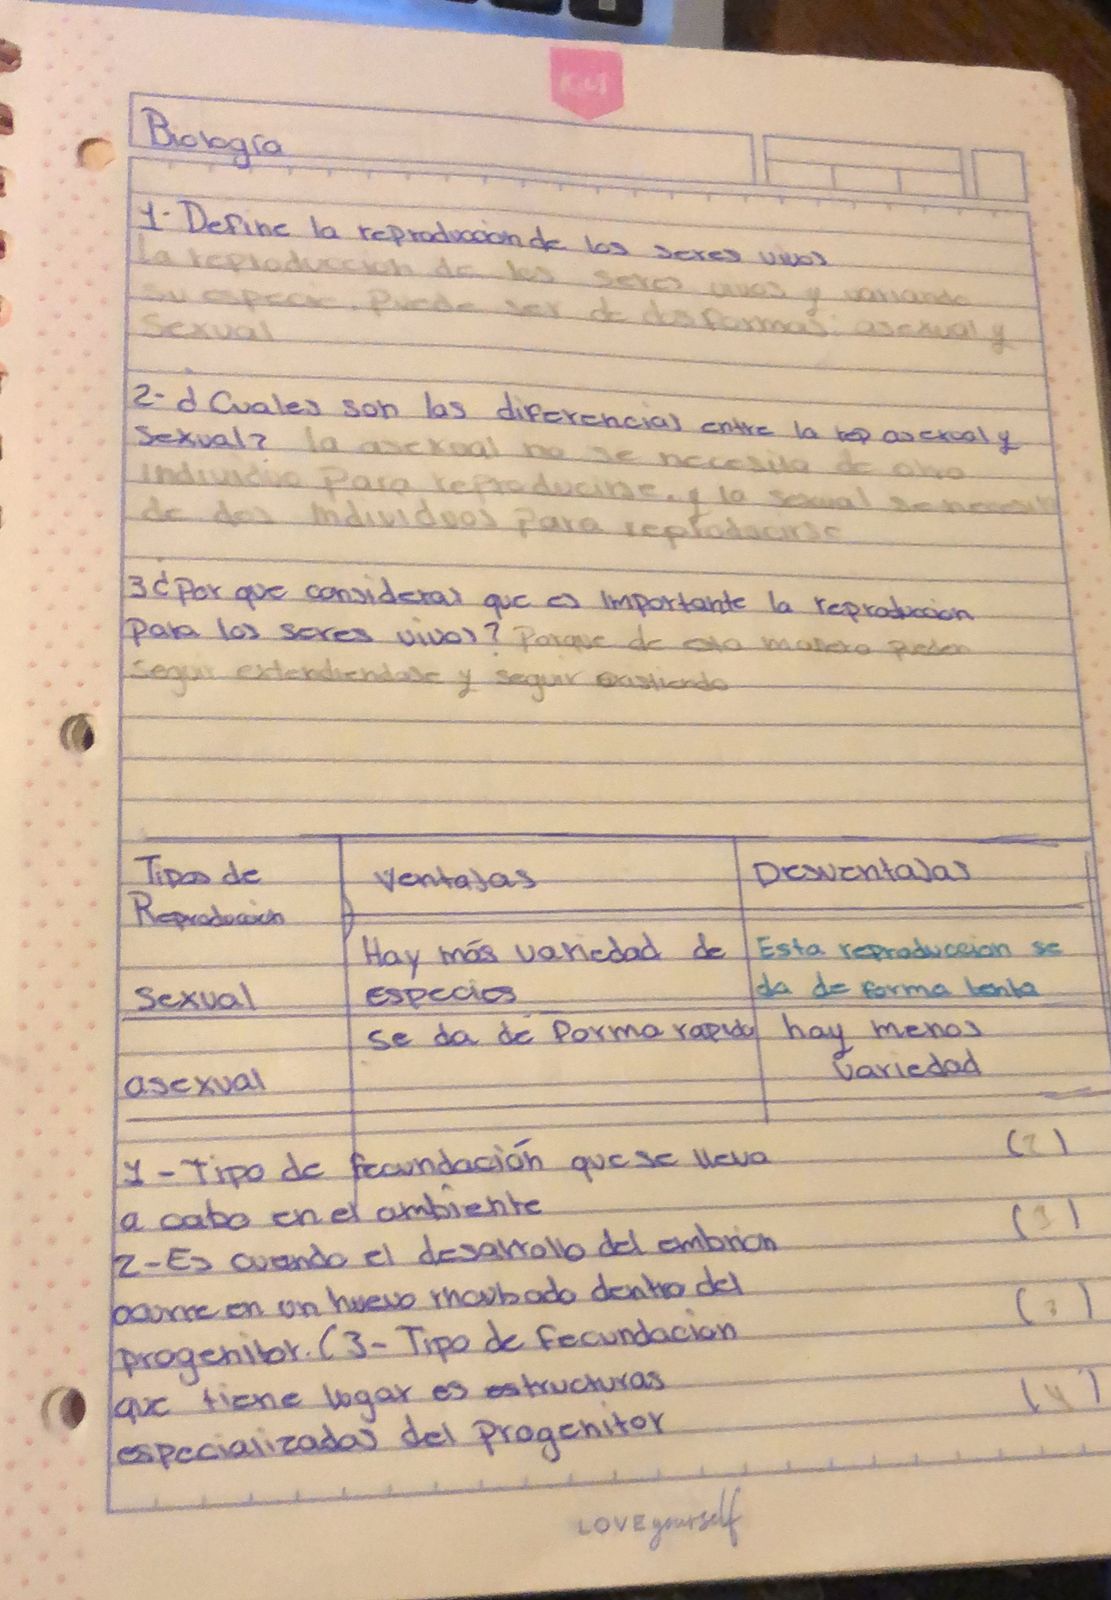 Kiut
Biología
1- Define la reproduccion de los seres vivos
la reproduccion de los seres vivos y variando
su especie, puede ser de dos formas: asexual y
sexual
2- ¿Cuales son las diferencias entre la rep asexual y
sexual? la asexual no se necesita de otro
individuo para reproducirse, y la sexual se necesita
de dos individuos para reproducirse
3 ¿Por que consideras que es importante la reproduccion
para los seres vivos? Porque de esta manera pueden
seguir extendiendose y seguir existiendo
Tipos de Ventajas Desventajas
Reproduccion
Hay más variedad de Esta reproduccion se
sexual especies da de forma lenta
se da de forma rapida hay menos
asexual variedad
1- Tipo de fecundación que se lleva (2)
a cabo en el ambiente
2- Es cuando el desarrollo del embrion (1)
ocurre en un huevo incubado dentro del
progenitor. (3- Tipo de fecundacion (3)
que tiene lugar es estructuras
especializadas del progenitor (4)
LOVE yourself